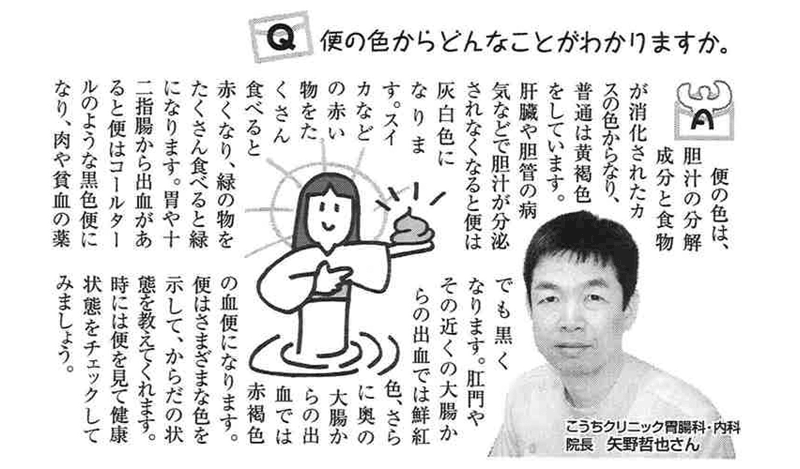 Q
便の色からどんなことがわかりますか。
A
便の色は、
胆汁の分解
成分と食物
が消化されたカ
スの色からなり、
普通は黄褐色
をしています。
肝臓や胆管の病
気などで胆汁が分泌
されなくなると便は
灰白色に
なりま
す。スイ
カなど
の赤い
物をた
くさん
食べると
赤くなり、緑の物を
たくさん食べると緑
になります。胃や十
二指腸から出血があ
ると便はコールター
ルのような黒色便に
なり、肉や貧血の薬
でも黒く
なります。肛門や
その近くの大腸か
らの出血では鮮紅
色、さら
に奥の
大腸か
らの出
血では
赤褐色
の血便になります。
便はさまざまな色を
示して、からだの状
態を教えてくれます。
時には便を見て健康
状態をチェックして
みましょう。
こうちクリニック胃腸科・内科
院長 矢野哲也さん